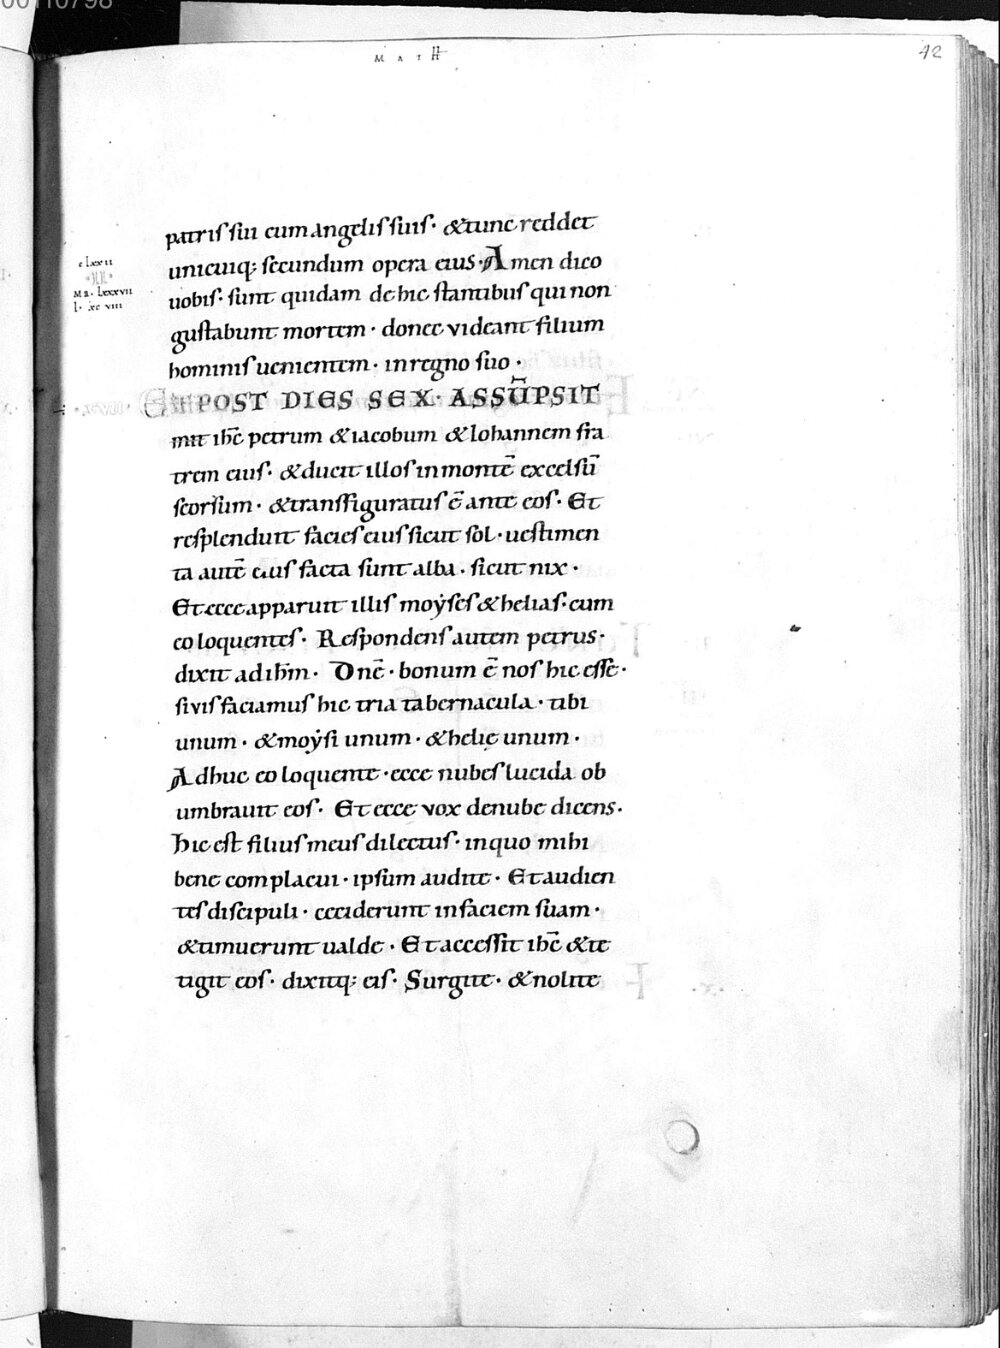 00110798
MATH
42
patris sui cum angelis suis· &tunc reddet
unicuiq; secundum opera eius· Amen dico
uobis· sunt quidam de hic stantibus qui non
gustabunt mortem· donec videant filium
hominis uenientem· in regno suo·
ET POST DIES SEX· ASSU̅PSIT
ihc̅ petrum &iacobum &Iohannem fra
trem eius· &ducit illos in monte̅ excelsu̅
seorsum· &transfiguratus e̅ ante eos· Et
resplenduit facies eius sicut sol· uestimen
ta aute̅ eius facta sunt alba· sicut nix·
Et ecce apparuit illis moẏses &helias· cum
eo loquentes· Respondens autem petrus·
dixit ad ihm̅· Dne̅· bonum e̅ nos hic esse·
si vis faciamus hic tria tabernacula· tibi
unum· &moẏsi unum· &helię unum·
Adhuc eo loquente· ecce nubes lucida ob
umbrauit eos· Et ecce vox de nube dicens·
Hic est filius meus dilectus· in quo mihi
bene complacui· ipsum audite· Et audien
tes discipuli· ceciderunt in faciem suam·
&timuerunt ualde· Et accessit ihc̅ &te
tigit eos· dixitq; eis· Surgite· &nolite
c lxxii
MR· lxxxvii
l· xcviii